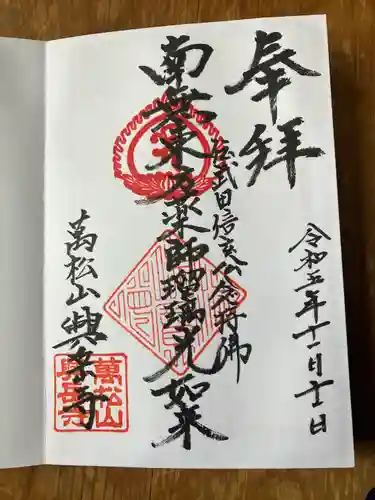 奉拝
令和五年十一月十二日
武田信玄公念持佛
南無東方薬師瑠璃光如来
萬松山興岳寺
萬松山
興岳寺